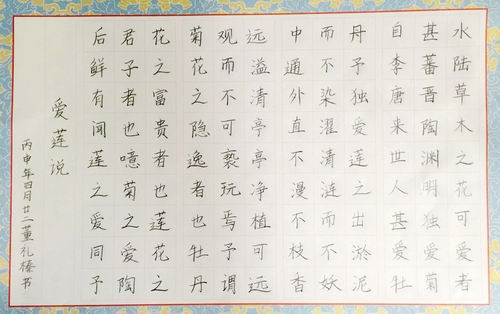 水陆草木之花可爱者
甚蕃晋陶渊明独爱菊
自李唐来世人甚爱牡
丹予独爱莲之出淤泥
而不染濯清涟而不妖
中通外直不漫不枝香
远溢清亭亭净植可远
观而不可亵玩焉予谓
菊花之隐逸者也牡丹
花之富贵者也莲花之
君子者也噫菊之爱陶
后鲜有闻莲之爱同予
愛莲说
丙申年四月廿二董礼榛书